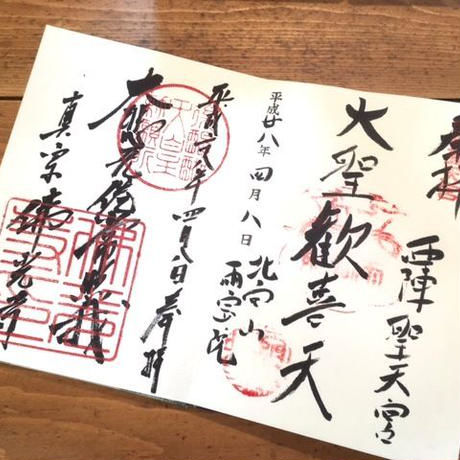 奉拝
西陣聖天宮
大聖歡喜天
北向山
雨宝院
平成廿八年 四月八日
平成廿八年 四月八日 奉拝
大悲无倦常照我
真宗佛光寺